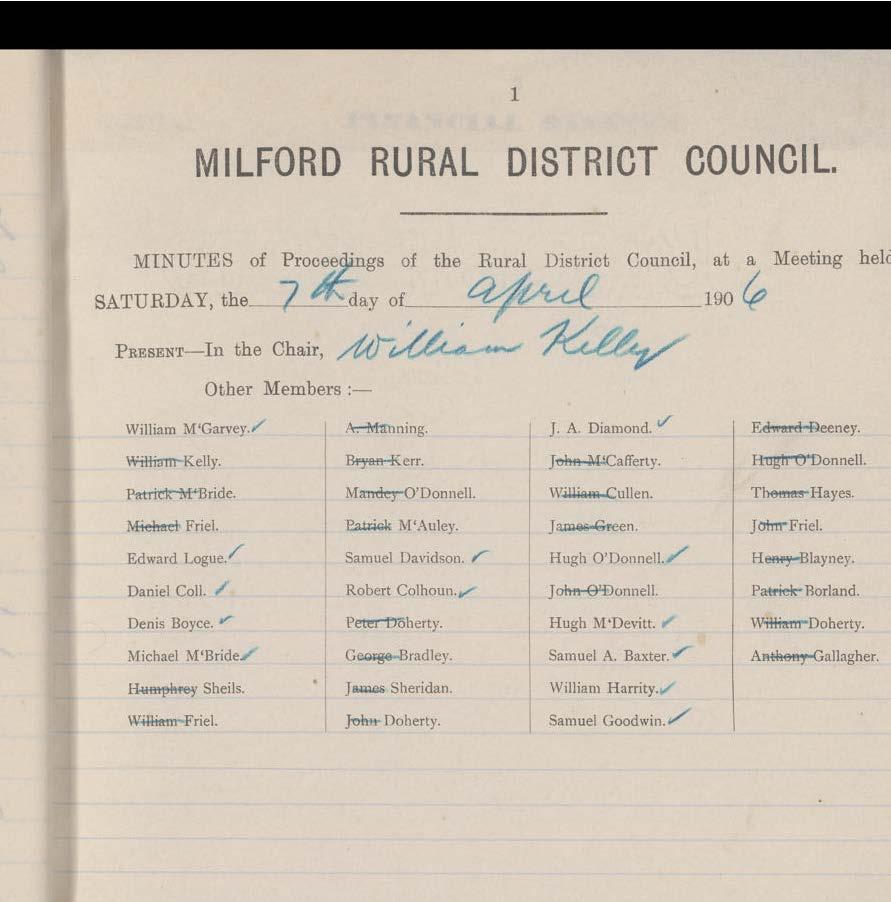 1
MILFORD RURAL DISTRICT COUNCIL.
MINUTES of Proceedings of the Rural District Council, at a Meeting held
SATURDAY, the 7th day of April 1906
PRESENT—In the Chair, William Kelly
Other Members :—
William M‘Garvey. ✓
William Kelly.
Patrick M‘Bride.
Michael Friel.
Edward Logue. ✓
Daniel Coll. ✓
Denis Boyce. ✓
Michael M‘Bride. ✓
Humphrey Sheils.
William Friel.
A. Manning.
Bryan Kerr.
Mandey O'Donnell.
Patrick M‘Auley.
Samuel Davidson. ✓
Robert Colhoun. ✓
Peter Doherty.
George Bradley.
James Sheridan.
John Doherty.
J. A. Diamond. ✓
John M‘Cafferty.
William Cullen.
James Green.
Hugh O'Donnell. ✓
John O'Donnell.
Hugh M‘Devitt. ✓
Samuel A. Baxter. ✓
William Harrity. ✓
Samuel Goodwin. ✓
Edward Deeney.
Hugh O'Donnell.
Thomas Hayes.
John Friel.
Henry Blayney.
Patrick Borland.
William Doherty.
Anthony Gallagher.